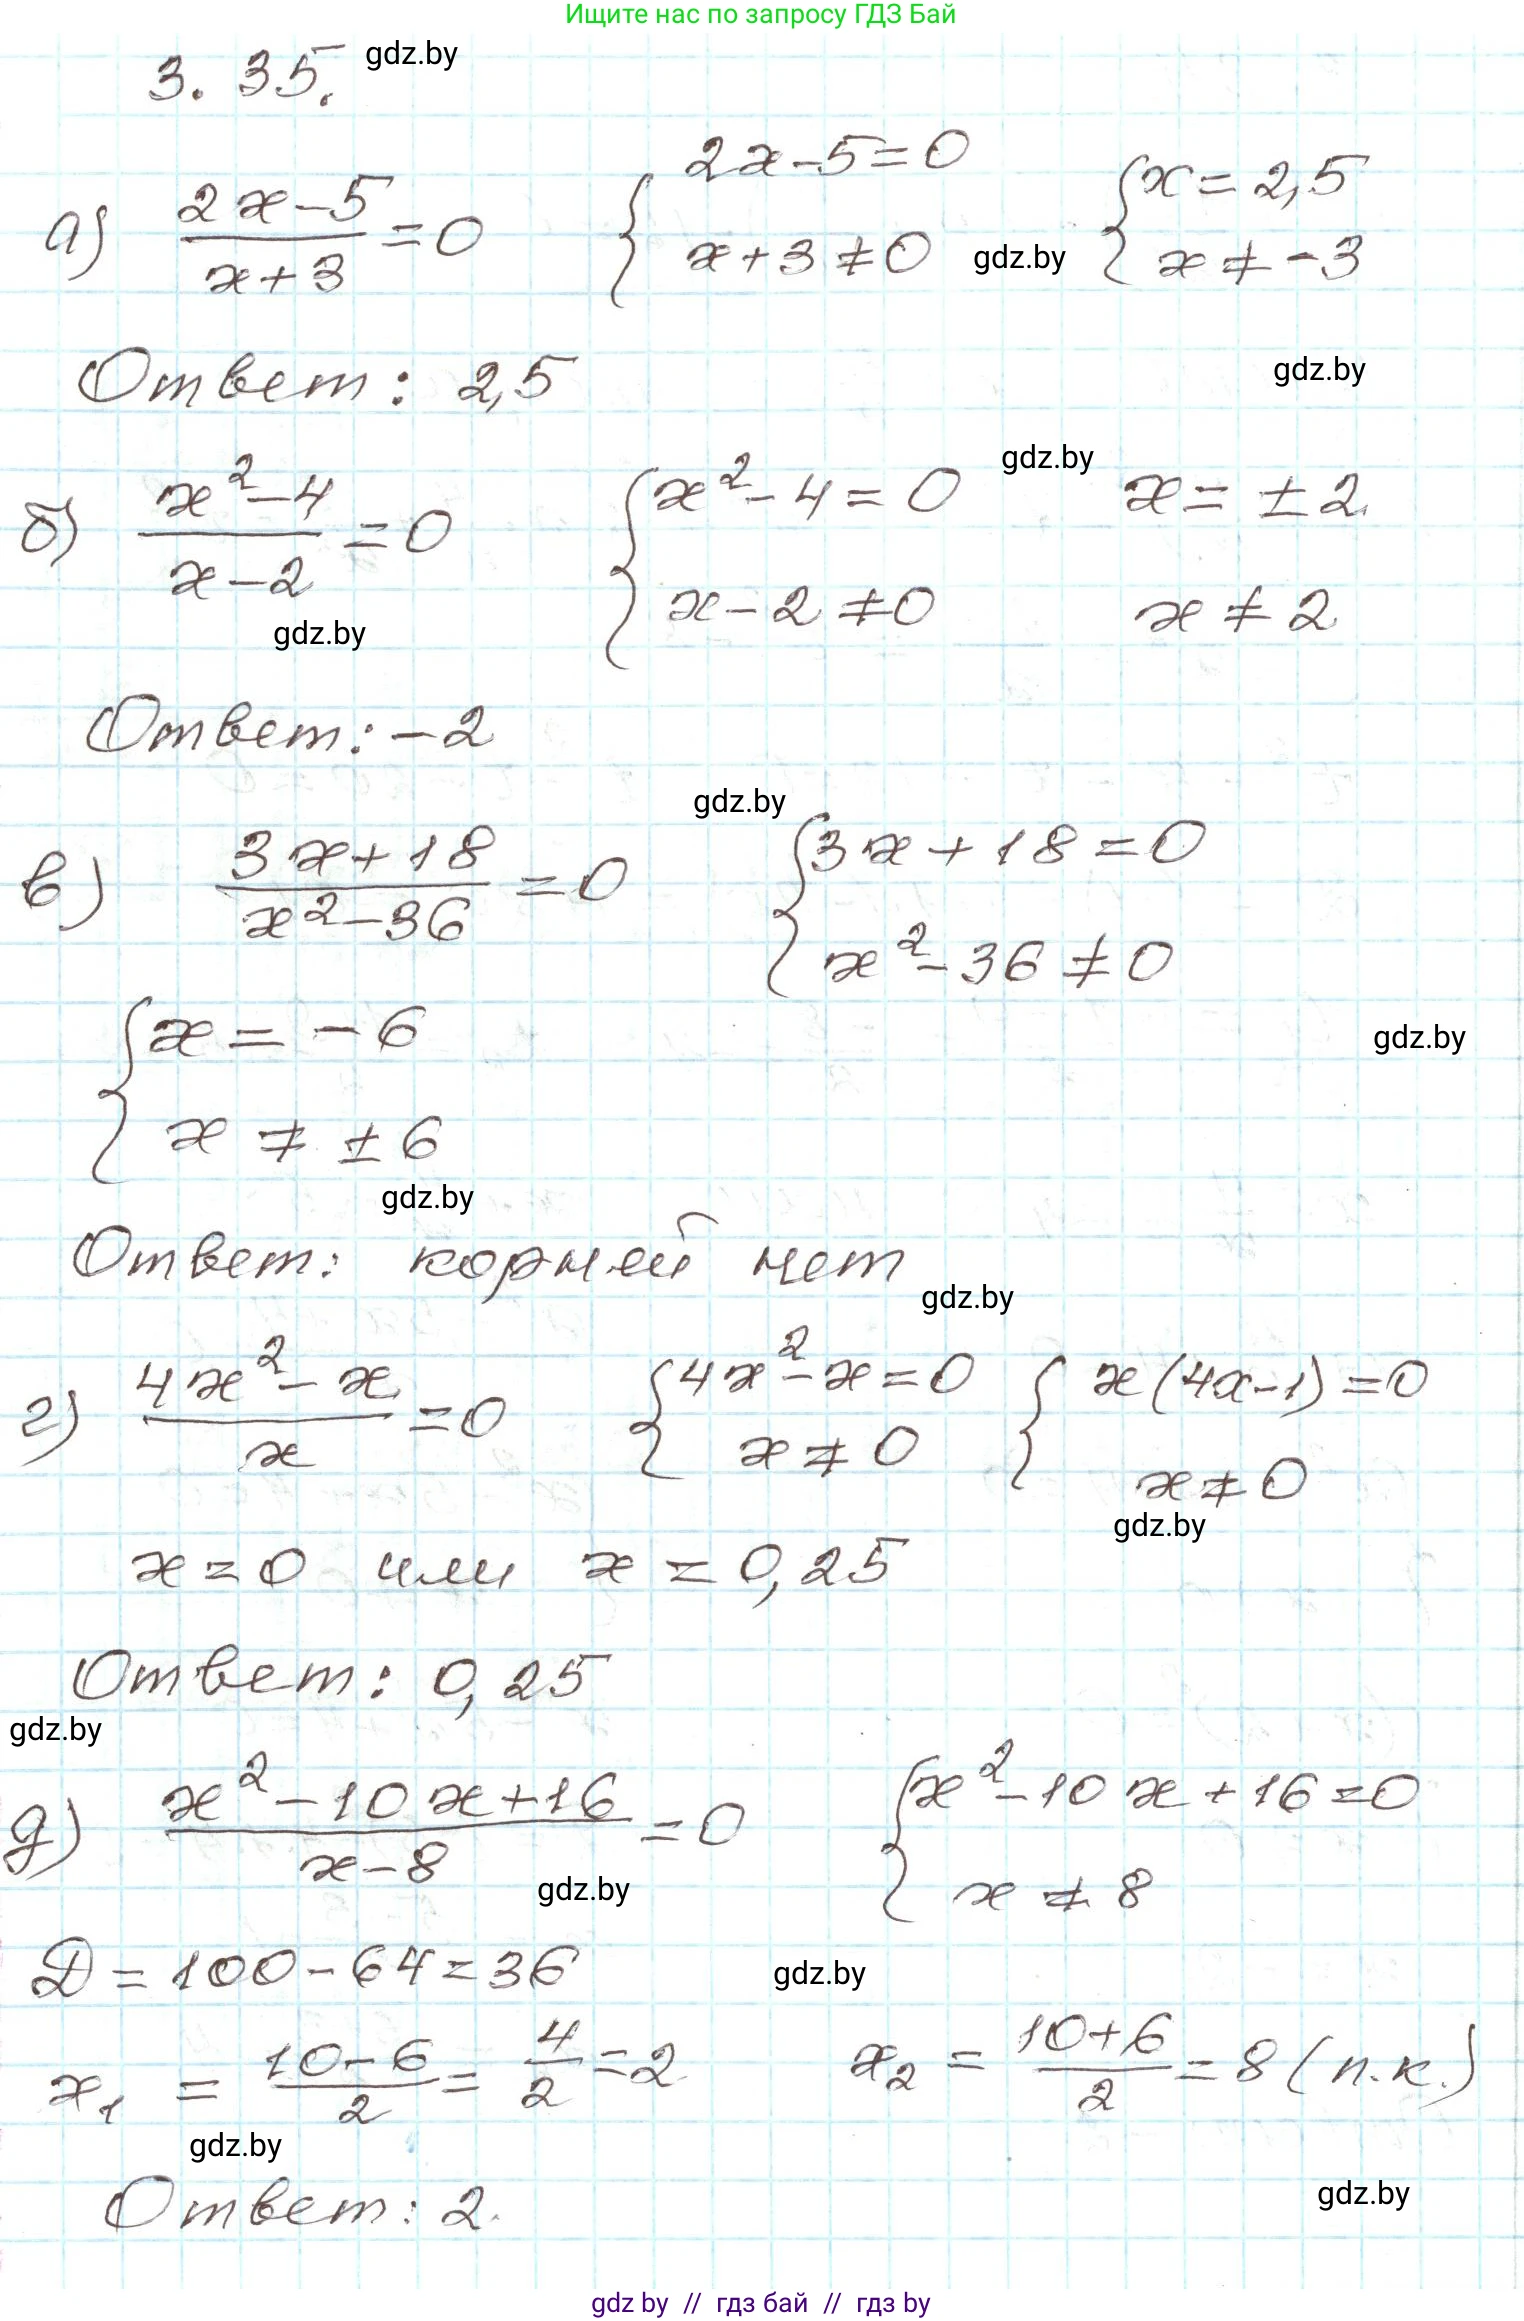 Ищите нас по запросу ГДЗ Бай
3.35. gdz.by
а) (2x-5)/(x+3) = 0 { 2x-5=0 ; x+3≠0 gdz.by { x=2,5 ; x≠-3
Ответ: 2,5 gdz.by
б) (x²-4)/(x-2) = 0 { x²-4=0 ; x-2≠0 gdz.by x=±2 ; x≠2
gdz.by
Ответ: -2
gdz.by
в) (3x+18)/(x²-36) = 0 { 3x+18=0 ; x²-36≠0
{ x=-6 ; x≠±6 gdz.by
gdz.by
Ответ: корней нет
gdz.by
г) (4x²-x)/x = 0 { 4x²-x=0 ; x≠0 { x(4x-1)=0 ; x≠0
gdz.by
x=0 или x=0,25
Ответ: 0,25
gdz.by
д) (x²-10x+16)/(x-8) = 0 gdz.by { x²-10x+16=0 ; x≠8
D=100-64=36 gdz.by
x₁ = (10-6)/2 = 4/2 = 2 x₂ = (10+6)/2 = 8 (п.к.)
gdz.by
Ответ: 2. gdz.by
gdz by // гдз бай // гдз by